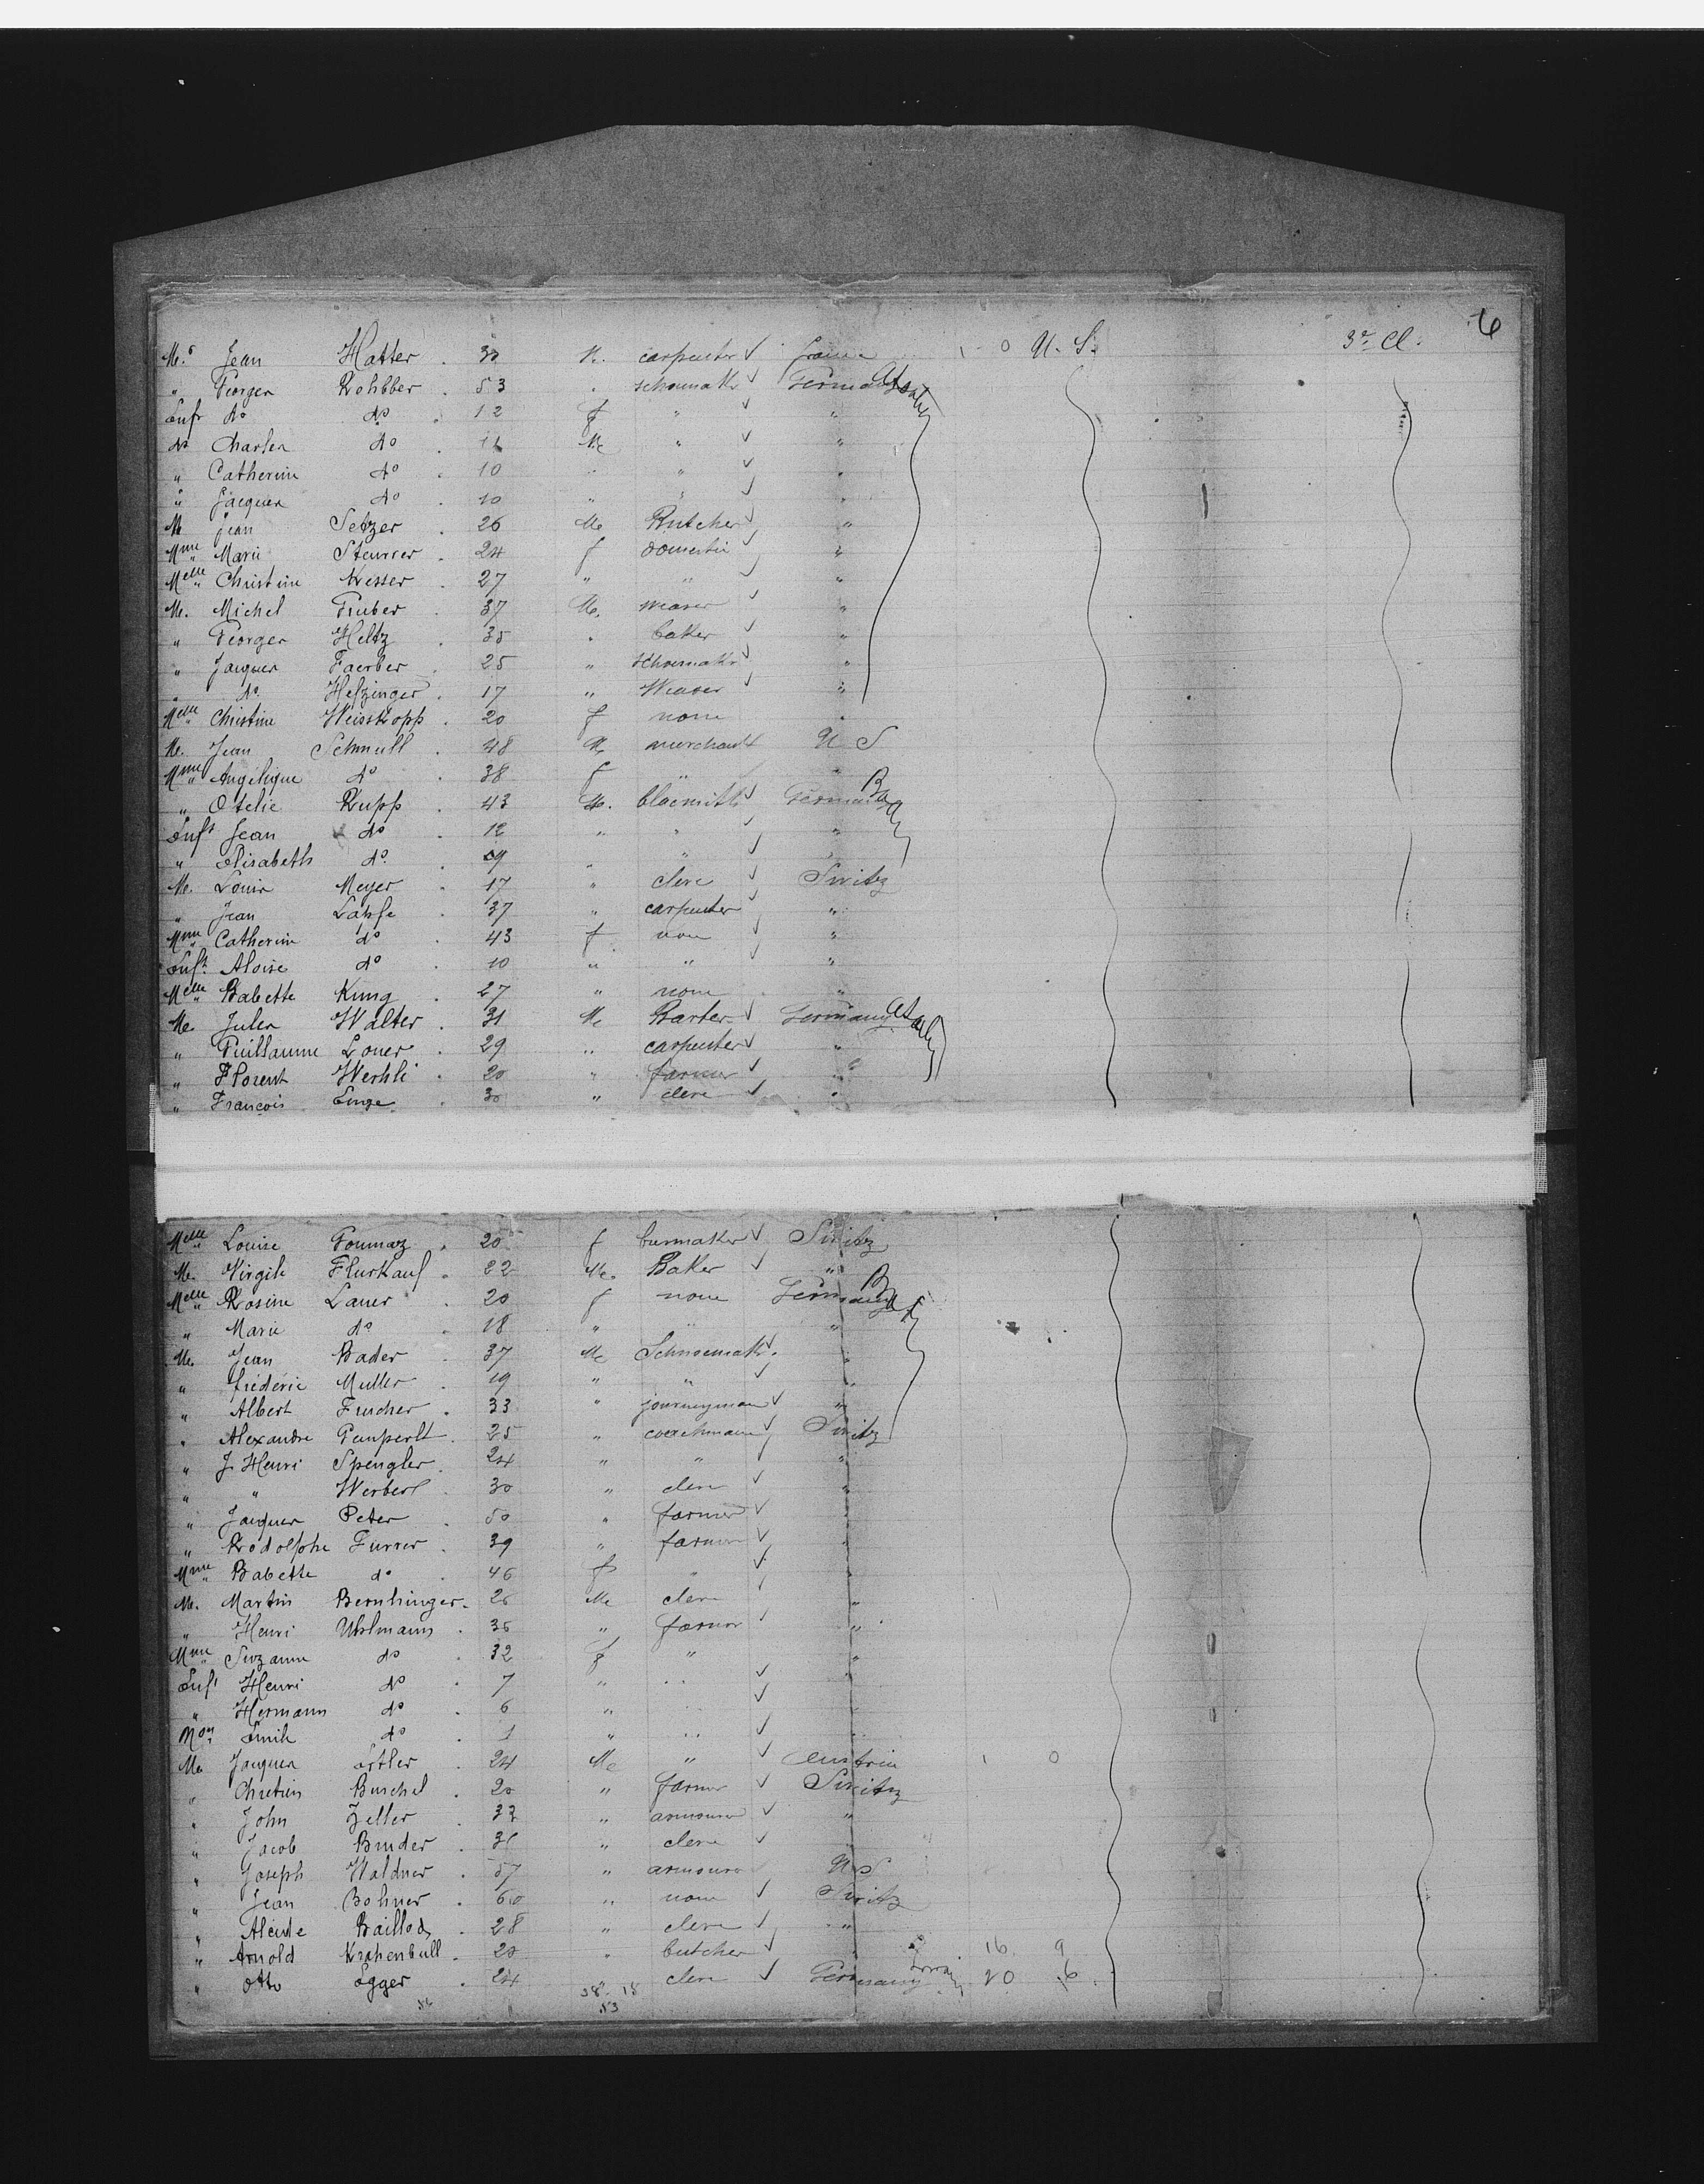 6
M.r Jean Hatter . 30 M. carpenter ✓ france 1 0 U. S. 3e Cl.
" Georges Rohbber . 53 . schoumakr ✓ Germany Alsatz
Enft do do . 12 f " ✓ "
do Charles do . 11 M. " ✓ "
" Catherine do . 10 " " ✓ "
" Jacques do . 10 " " ✓ "
M. Jean Setzer . 26 M. Butcher ✓ "
Mme Marie Steurer . 24 f domestic ✓ "
Melle Christine Kesser . 27 " " ✓ "
M. Michel Gruber . 37 M. ✓ "
" Georges Heltz . 35 . baker ✓ "
" Jacques Faerber . 25 " schoemakr ✓ "
" do Helzinger . 17 " Weaver ✓ "
Melle Christine Weisskopp . 20 f none "
M. Jean Schmull . 48 M. merchant U S
Mme Angélique do . 38 f " "
" Otelie Rupp . 43 M. blacmith ✓ Germany Bad
Enft Jean do . 12 " " ✓ "
" Elisabeth do . 9 " " ✓ "
M. Louis Meyer . 17 " clerc ✓ Switz
" Jean . 37 " carpenter ✓ "
Mme Catherine do . 43 f non ✓ "
Enft Aloise do . 10 " " ✓ "
Melle Babette Kung . 27 " none "
M. Jules Walter . 31 M. ✓ Germany Alsatz
" Guillaume Loner . 29 " carpenter ✓ "
" Florent Werhli . 20 " farmer ✓ "
" François Enge . 30 " clerc ✓ "
Melle Louise Gonmaz . 20 f ✓ Switz
M. Virgile Flurkauf . 22 M. Baker ✓ "
Melle Rosine Lauer . 20 f none Germany Bad
" Marie do . 18 " " "
M. Jean Bader . 37 M. Schnoemakr ✓ "
" frédéric Muller . 19 " " ✓ "
" Albert Fuscher . 33 " journeyman ✓ "
" Alexandre Gemperlt . 25 " coachmann ✓ Switz
" J. Henri Spengler . 24 " " ✓ "
" " Werberl 30 " clerc ✓ "
" Jacques Peter . 50 " farmer ✓ "
" Rodolphe Furrer . 39 " farmer ✓ "
Mme Babette do . 46 f " ✓ "
M. Martin Bernhinger . 26 M. clerc ✓ "
" Henri Uhlmann . 35 " farmer ✓ "
Mme Suzanne do . 32 f " "
Enft Henri do . 7 " " ✓ "
" Hermann do . 6 " " ✓ "
Mon Emile do . 1 " " ✓ "
M. Jacques Ertler . 24 M. " ✓ Austria 1 0
" Chretien Buschel . 20 " farmer ✓ Switz
" John Zeller . 33 " armourer ✓ "
" Jacob Bruder . 31 " clerc ✓ "
" Joseph Waldner . 57 " armourer U S
" Jean Bohner . 60 " none ✓ Switz
" Alcide Baillod . 28 " clerc ✓ "
" Arnold Krahenbull . 20 " butcher ✓ " 16 9
" Otto Egger . 24 " clerc ✓ Germany Lorrain 20 6
56 38 15
53